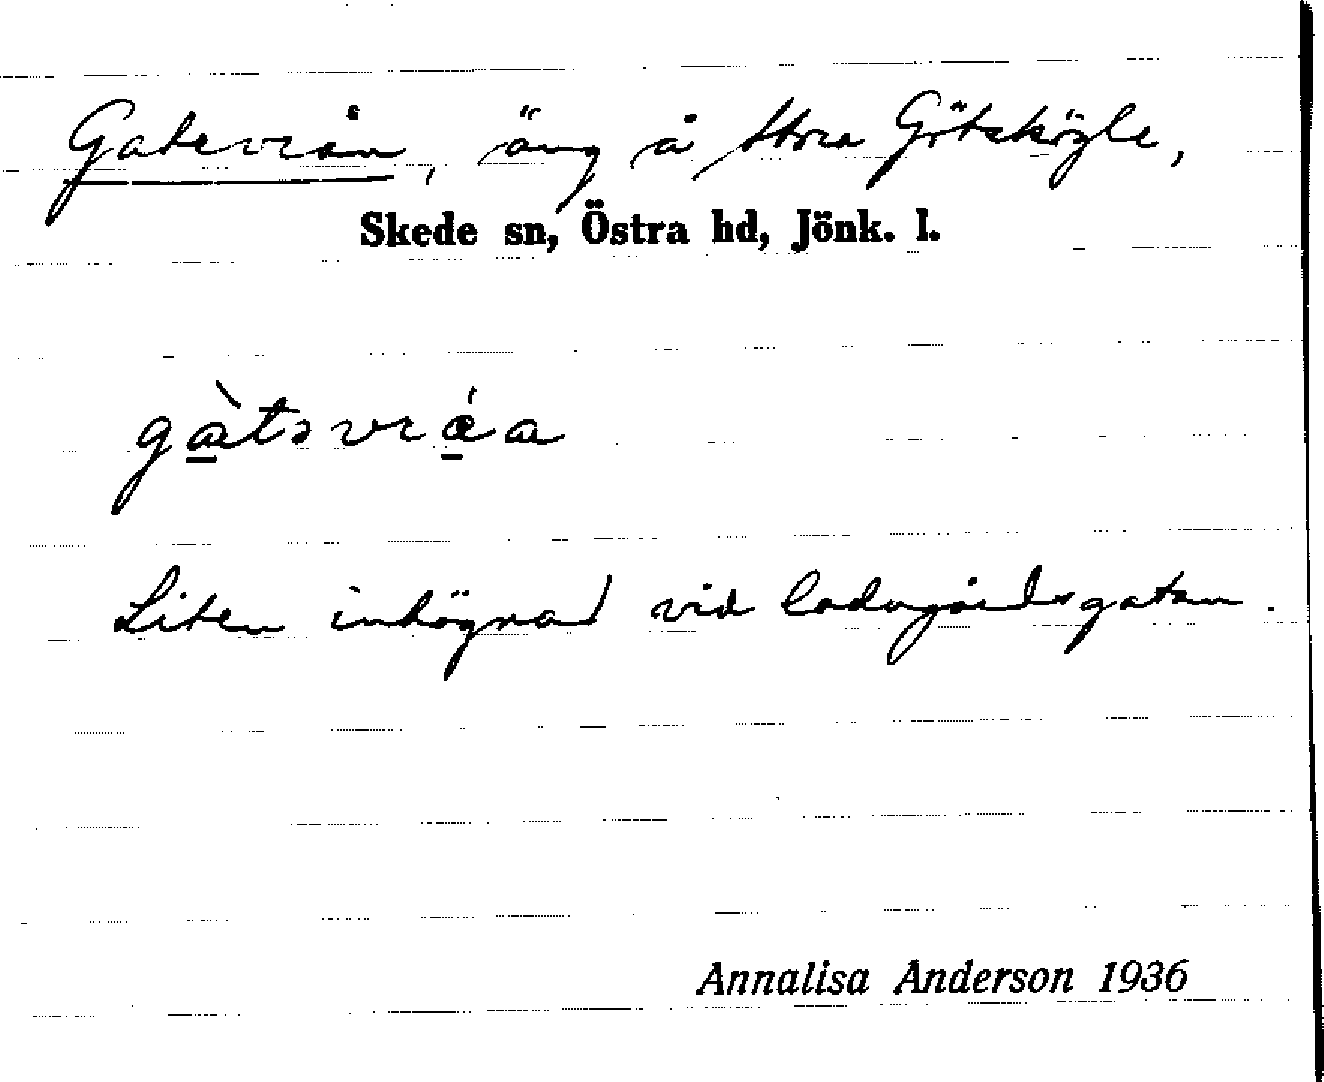 Gatevrån, äng å Stora Götskögle,
Skede sn, Östra hd, Jönk. l.
gàtəvráa
Liten inhögnad vid ladugårdsgatan.
Annalisa Anderson 1936